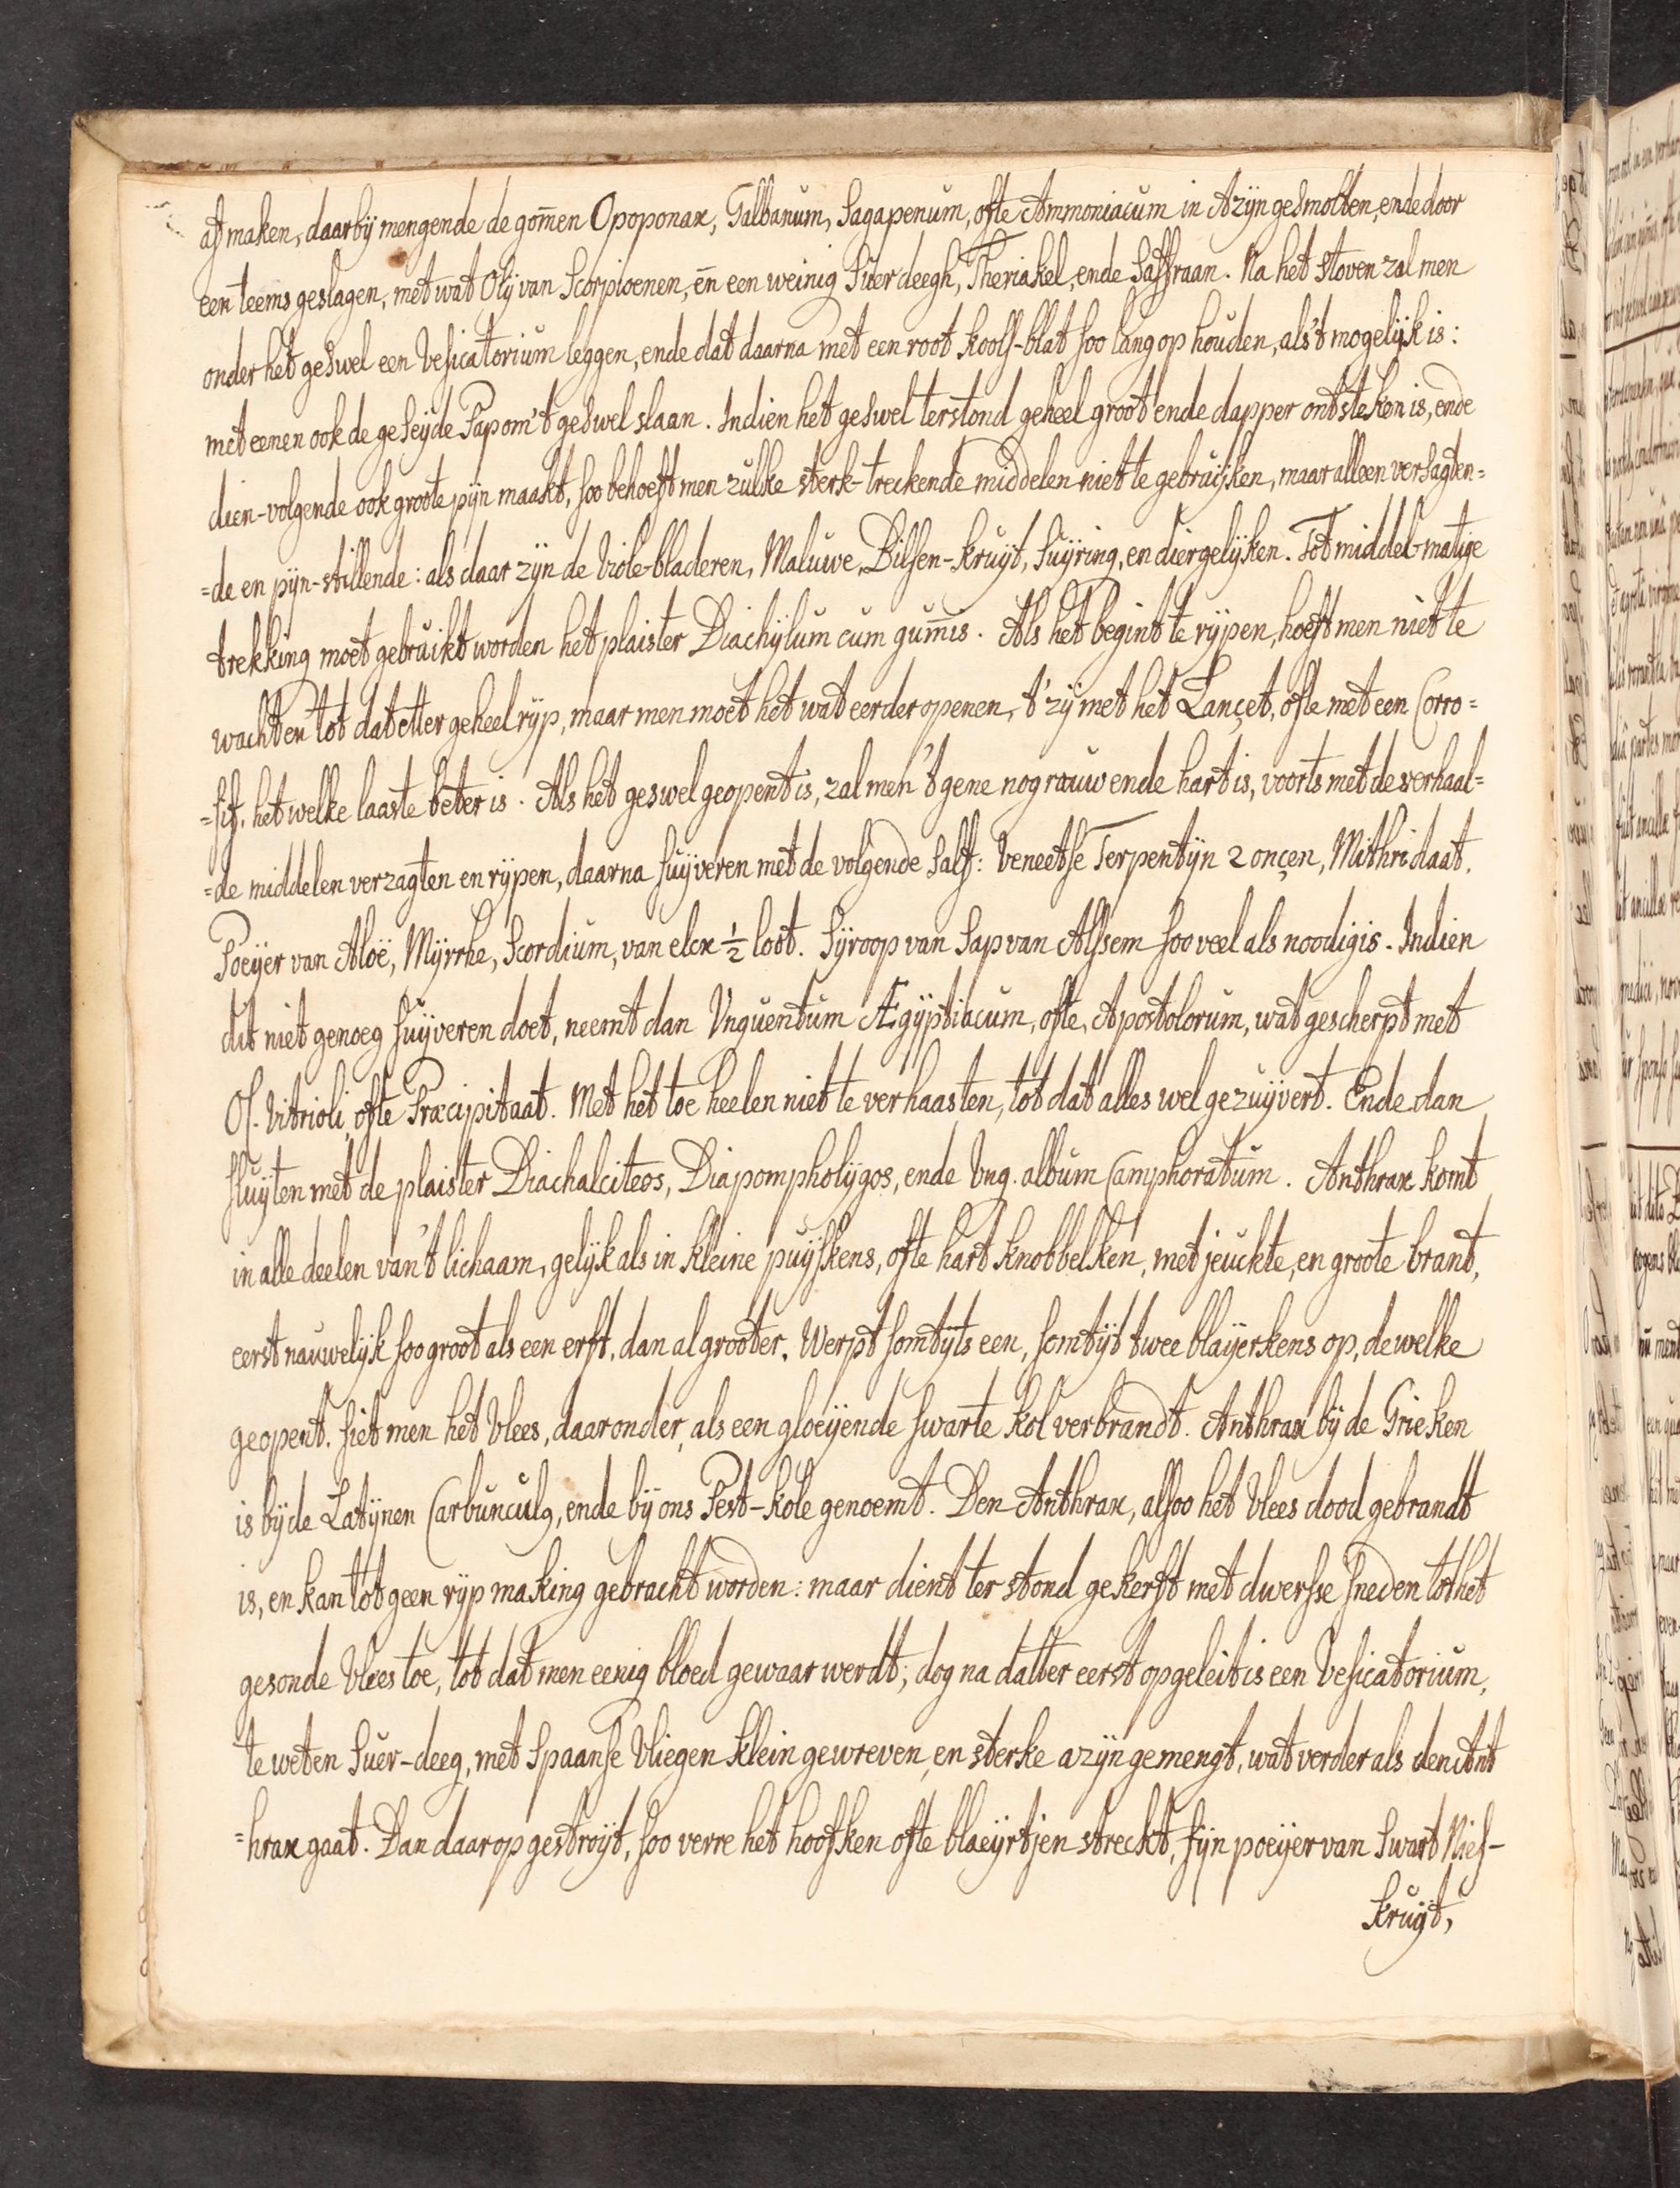 af maken, daar bij mengende de gom̄en Opoponax, Galbanum, Sagapenum, ofte Ammoniacum in Azijn gesmolten, ende door
een teems geslagen, met wat Olij van Scorpioenen, en̄ een weinig Suer deegh, Theriakel, ende Saffraan. Na het stoven zal men
onder het geswel een Vesicatorium leggen, ende dat daarna met een root kools-blat soo lang op houden, als 't mogelijk is:
met eenen ook de geseijde Pap om 't geswel slaan. Indien het geswel terstond geheel groot ende dapper ontsteken is, ende
dien-volgende ook groote pijn maakt, soo behoeft men zulke sterk-treckende middelen niet te gebruijken, maar alleen versagten=
=de en pijn-stillende: als daar zijn de Viole-bladeren, Maluwe, Bilsen-kruijt, Suijring, en diergelijken. Tot middel-matige
trekking moet gebruikt worden het plaister Diachijlum cum gum̄is. Als het begint te rijpen, hoeft men niet te
wachten tot dat etter geheel rijp, maar men moet het wat eerder openen, t' zij met het Lançet, ofte met een Corro=
=sif, het welke laaste beter is. Als het geswel geopent is, zal men 't gene nog rauw ende hart is, voorts met de verhaal=
=de middelen verzagten en rijpen, daarna suijveren met de volgende Salf: Veneetse Terpentijn 2 onçen, Mithridaat.
Poeijer van Aloë, Mijrrhe, Scordium, van elcx ½ loot. Sijroop van Sap van Alssem soo veel als noodig is. Indien
dit niet genoeg suijveren doet, neemt dan Vnguentum Ægijptiacum, ofte, Apostolorum, wat gescherpt met
Ol. Vitrioli, ofte Præcipitaat. Met het toe heelen niet te verhaasten, tot dat alles wel gezuijvert. Ende dan
sluijten met de plaister Diachalciteos, Diapompholijgos, ende Vng. album Camphoratum. Anthrax komt
in alle deelen van 't lichaam, gelijk als in kleine puijskens, ofte hart knobbelken, met jeuckte, en groote brant,
eerst nauwelijk soo groot als een erft, dan al grooter. Werpt somtijts een, somtijt twee blaijerkens op, de welke
geopent. siet men het Vlees, daar onder, als een gloeijende swarte kol verbrandt. Anthrax bij de Grieken
is bij de Latijnen Carbunculꝯ, ende bij ons Pest-kole genoemt. Den Anthrax, alsoo het Vlees dood gebrandt
is, en kan tot geen rijp making gebracht worden: maar dient ter stond gekerft met dwersse sneden tot het
gesonde Vlees toe, tot dat men eenig bloed gewaar werdt; dog na datter eerst opgeleit is een Vesicatorium,
te weten Suer-deeg, met Spaanse Vliegen klein gewreven, en sterke azijn gemengt, wat verder als den Ant
=hrax gaat. Dan daar op gestroijt, soo verre het hoofken ofte blaeijrtjen streckt, fijn poeijer van Swart Nies-
kruijt,